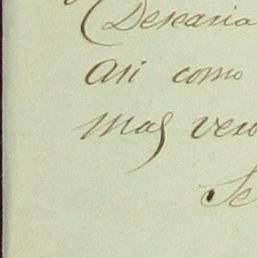 Desearia
Asi como
mas vero
Se